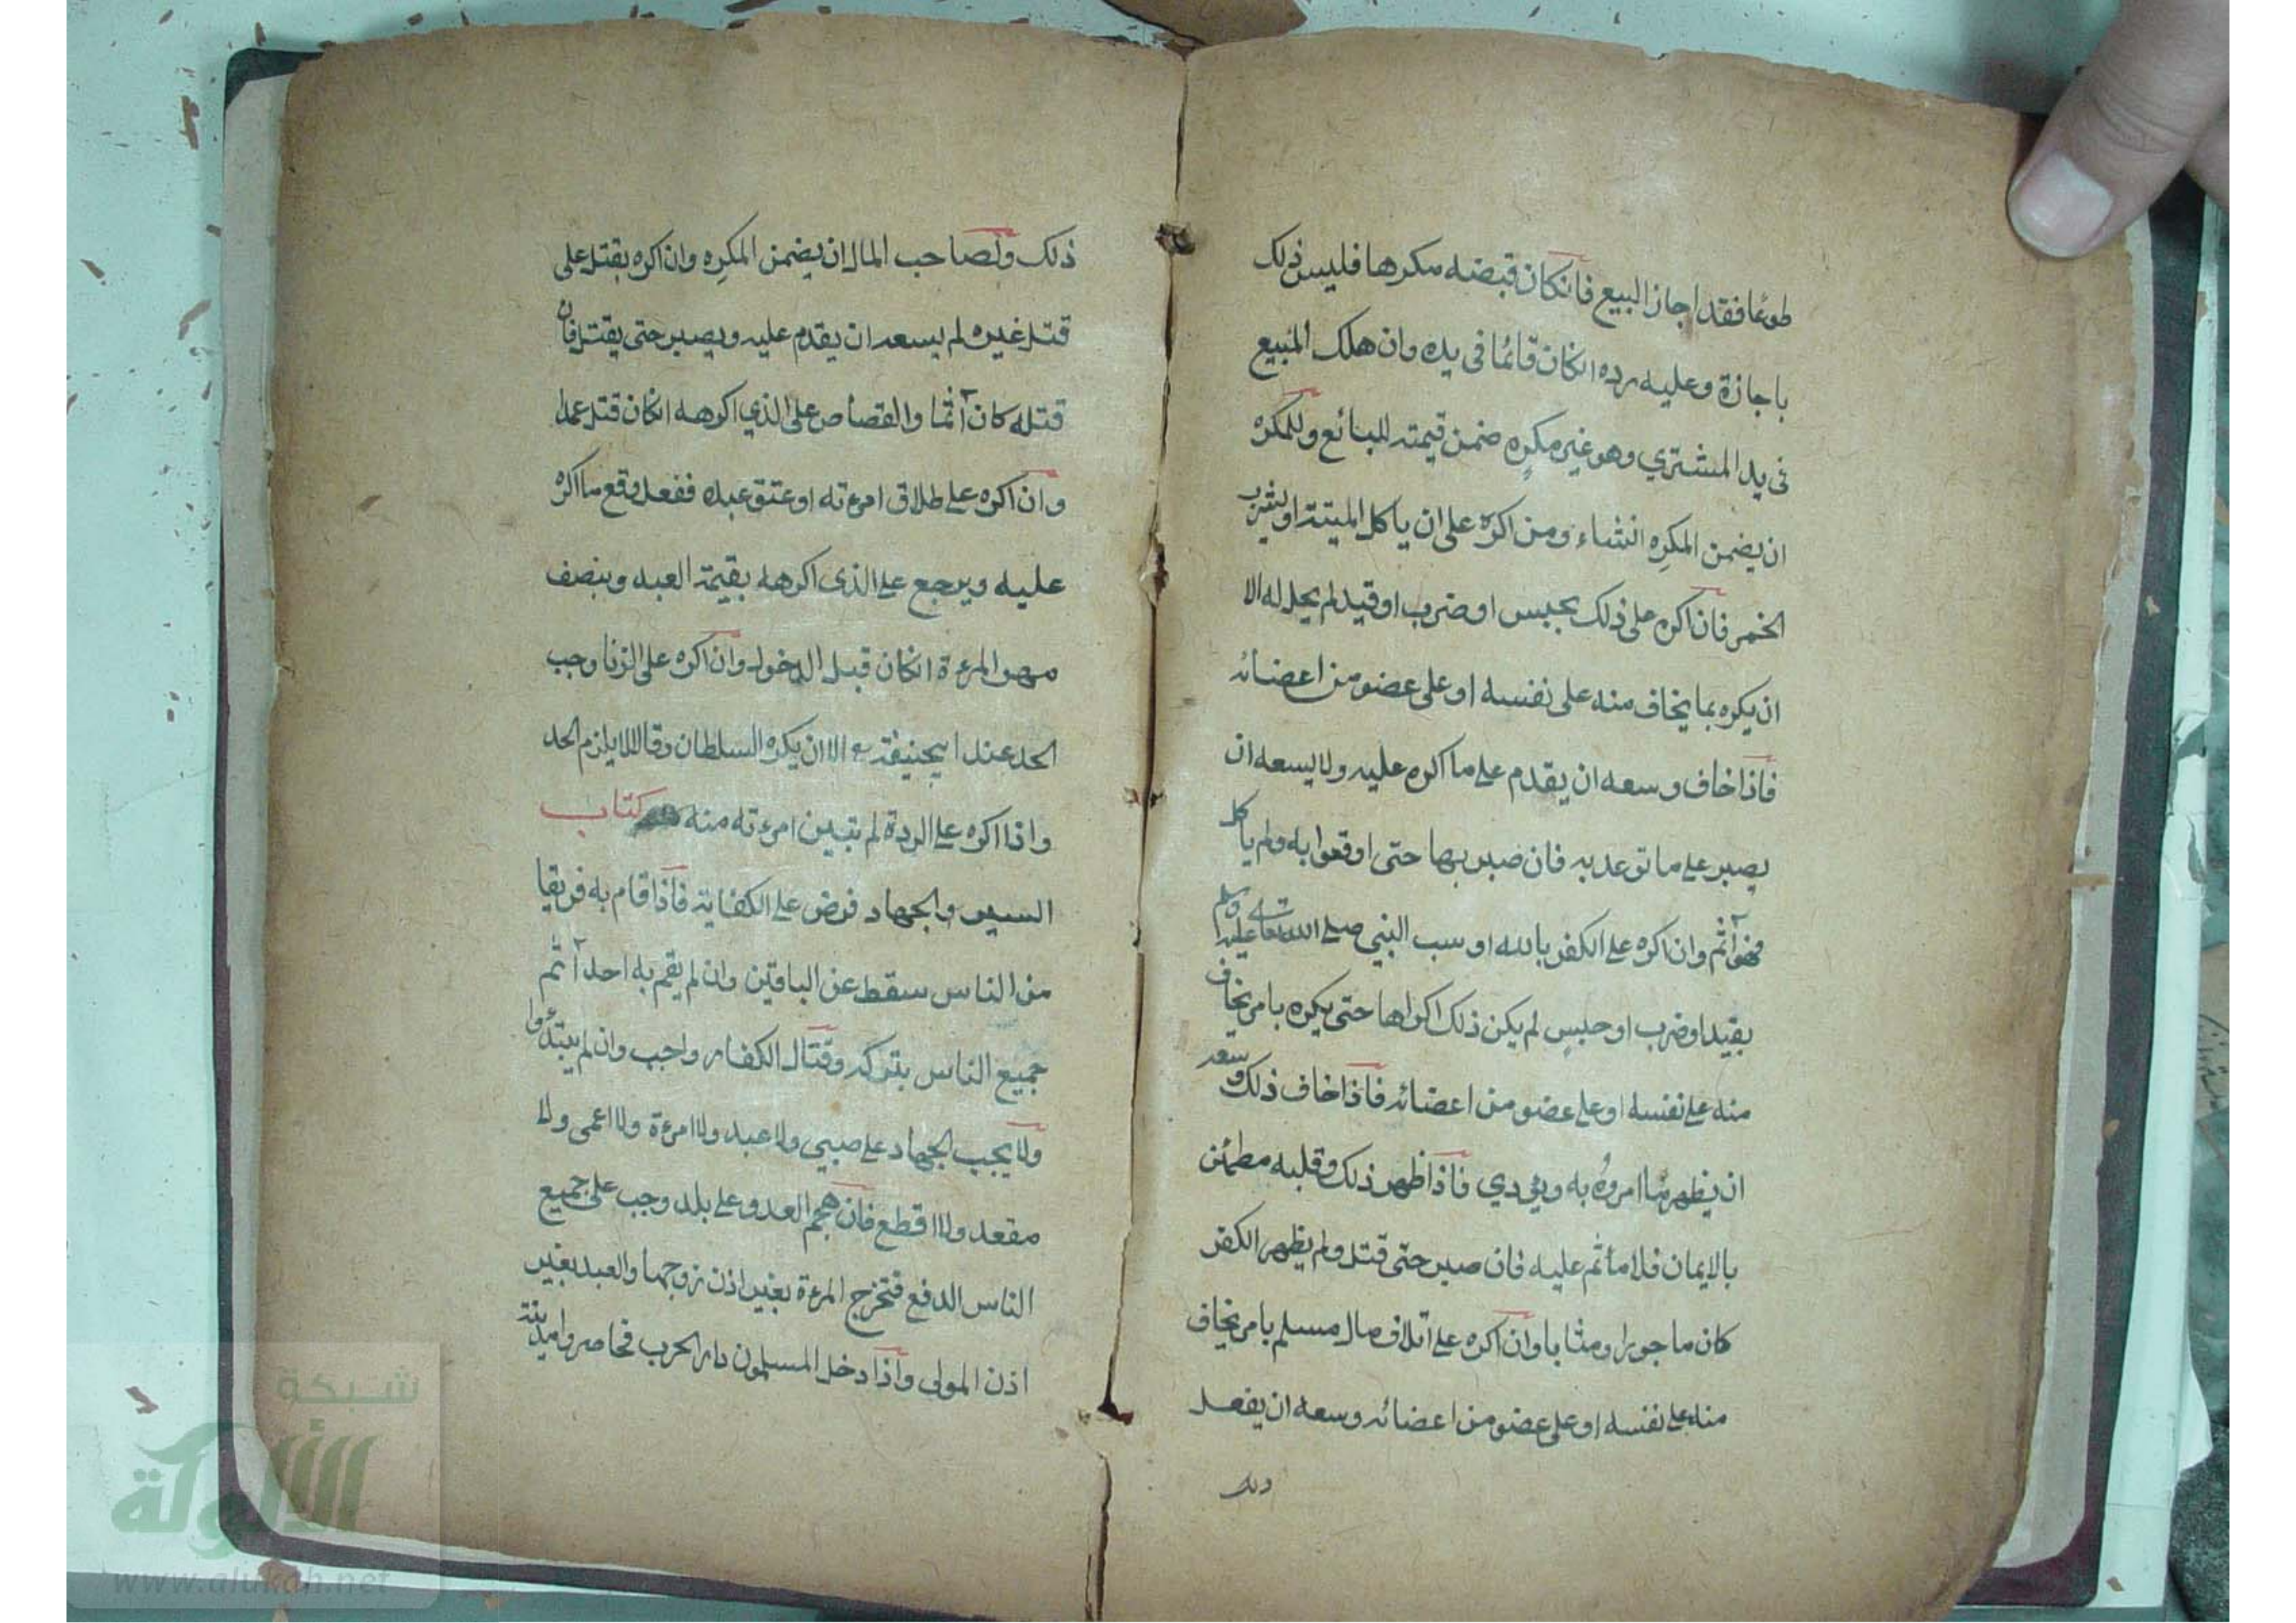 طوعًا فقد اجاز البيع فانكان قبضه مكرها فليس ذلك
باجازة وعليه رده انكان قائما فى يده وان هلك المبيع
فى يد المشتري وهو غير مكرِه ضمن قيمته للبائع وللمكرَه
ان يضمن المكرِه انشاء ومن اكره على ان ياكل الميتة اويشرب
الخمر فان اكره على ذلك بحبس او ضرب او قيد لم يحل له الا
ان يكره بما يخاف منه على نفسه او على عضو من اعضائه
فاذا خاف وسعه ان يقدم على ما اكره عليه ولا يسعه ان
يصبر على ما توعد به فان صبر بها حتى اوقعوا به ولم ياكل
فهو آثم وان اكره على الكفر بالله او سب النبي صلى الله تعالى عليه وسلم
بقيد اوضرب او حبس لم يكن ذلك اكراها حتى يكره بامر يخاف
منه على نفسه او على عضو من اعضائه فاذا خاف ذلك وسعه
ان يظهر ما امروه به ويؤدي فاذا ظهر ذلك وقلبه مطمئن
بالايمان فلا مأثم عليه فان صبر حتى قتل ولم يظهر الكفر
كان ماجورا ومثابا وان اكره على اتلاف مال مسلم بامر يخاف
منه على نفسه او على عضو من اعضائه وسعه ان يفعل
ذلك
ذلك ولصاحب المال ان يضمن المكرِه وان اكره بقتل على
قتل غيره لم يسعه ان يقدم عليه ويصبر حتى يقتل فان
قتله كان آثما والقصاص على الذي اكرهه انكان قتل عمدا
وان اكره على طلاق امرءته او عتق عبده ففعل وقع ما اكره
عليه ويرجع على الذى اكرهه بقيمة العبد وبنصف
مهر المرءة انكان قبل الدخول وان اكره على الزنا وجب
الحد عند ابيحنيفة رح الا ان يكره السلطان وقالا لا يلزم الحد
واذا اكره على الردة لم تبين امرءته منه كتاب
السير والجهاد فرض على الكفاية فاذا قام به فريقا
من الناس سقط عن الباقين وان لم يقم به احد آثم
جميع الناس بتركه وقتال الكفار واجب وان لم يبتدءوا
ولا يجب الجهاد على صبي ولا عبد ولا امرءة ولا اعمى ولا
مقعد ولا اقطع فان هجم العدو على بلد وجب على جميع
الناس الدفع فتخرج المرءة بغير اذن زوجها والعبد بغير
اذن المولى واذا دخل المسلمون دار الحرب فحاصروا مدينة
شبكة
الألوكة
www.alukah.net